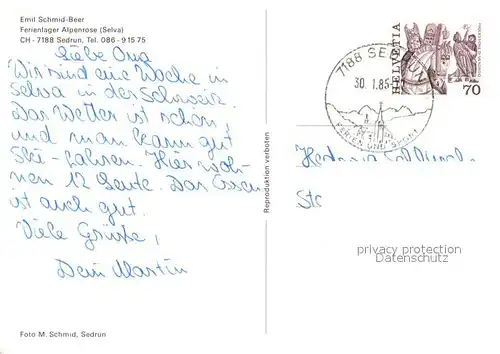 Emil Schmid-Beer
Ferienlager Alpenrose (Selva)
CH - 7188 Sedrun, Tel. 086 - 9 15 75
Liebe Oma
Wir sind eine Woche in
Selva in der Schweiz.
Das Wetter ist schön,
und man kann gut
Ski-fahren. Hier woh-
nen 12 Leute. Das Essen
ist auch gut.
Viele Grüße,
Dein Martin
Foto M. Schmid, Sedrun
Reproduktion verboten
7188 SEDRUN
30. 1.85
FERIEN UND SPORT
HELVETIA
70
Str
privacy protection
Datenschutz